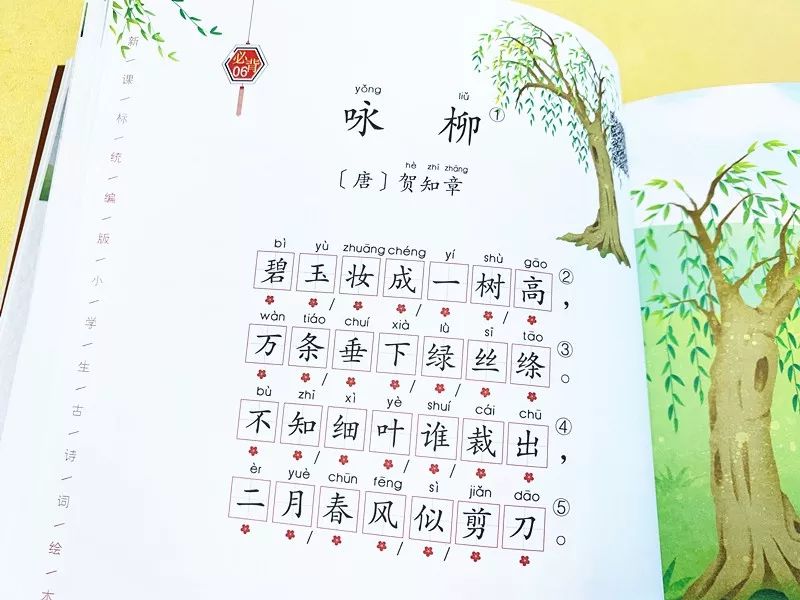 新/课/标/统/编/版/小/学/生/古/诗/词/绘/本
必背
06
yǒng liǔ
咏柳①
hè zhī zhāng
〔唐〕贺知章
bì yù zhuāng chéng yí shù gāo
碧玉/妆成/一树/高②，
wàn tiáo chuí xià lǜ sī tāo
万条/垂下/绿/丝绦③。
bù zhī xì yè shuí cái chū
不知/细叶/谁/裁出④，
èr yuè chūn fēng sì jiǎn dāo
二月/春风/似/剪刀⑤。